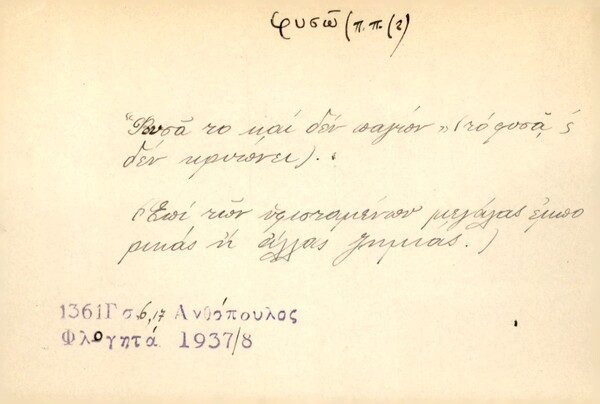 φυσῶ (π.π. (2)
"Φυσᾶ το καί δέν παγών» (τό φυσᾶ, ς
δέν κρυώνει).
(Ἐπί τῶν ὑφισταμένων μεγάλας ἐμπο
ρικάς ἤ ἄλλας ζημίας.)
1361Γ σ. 6,17 Ανθόπουλος
Φλογητά 1937/8